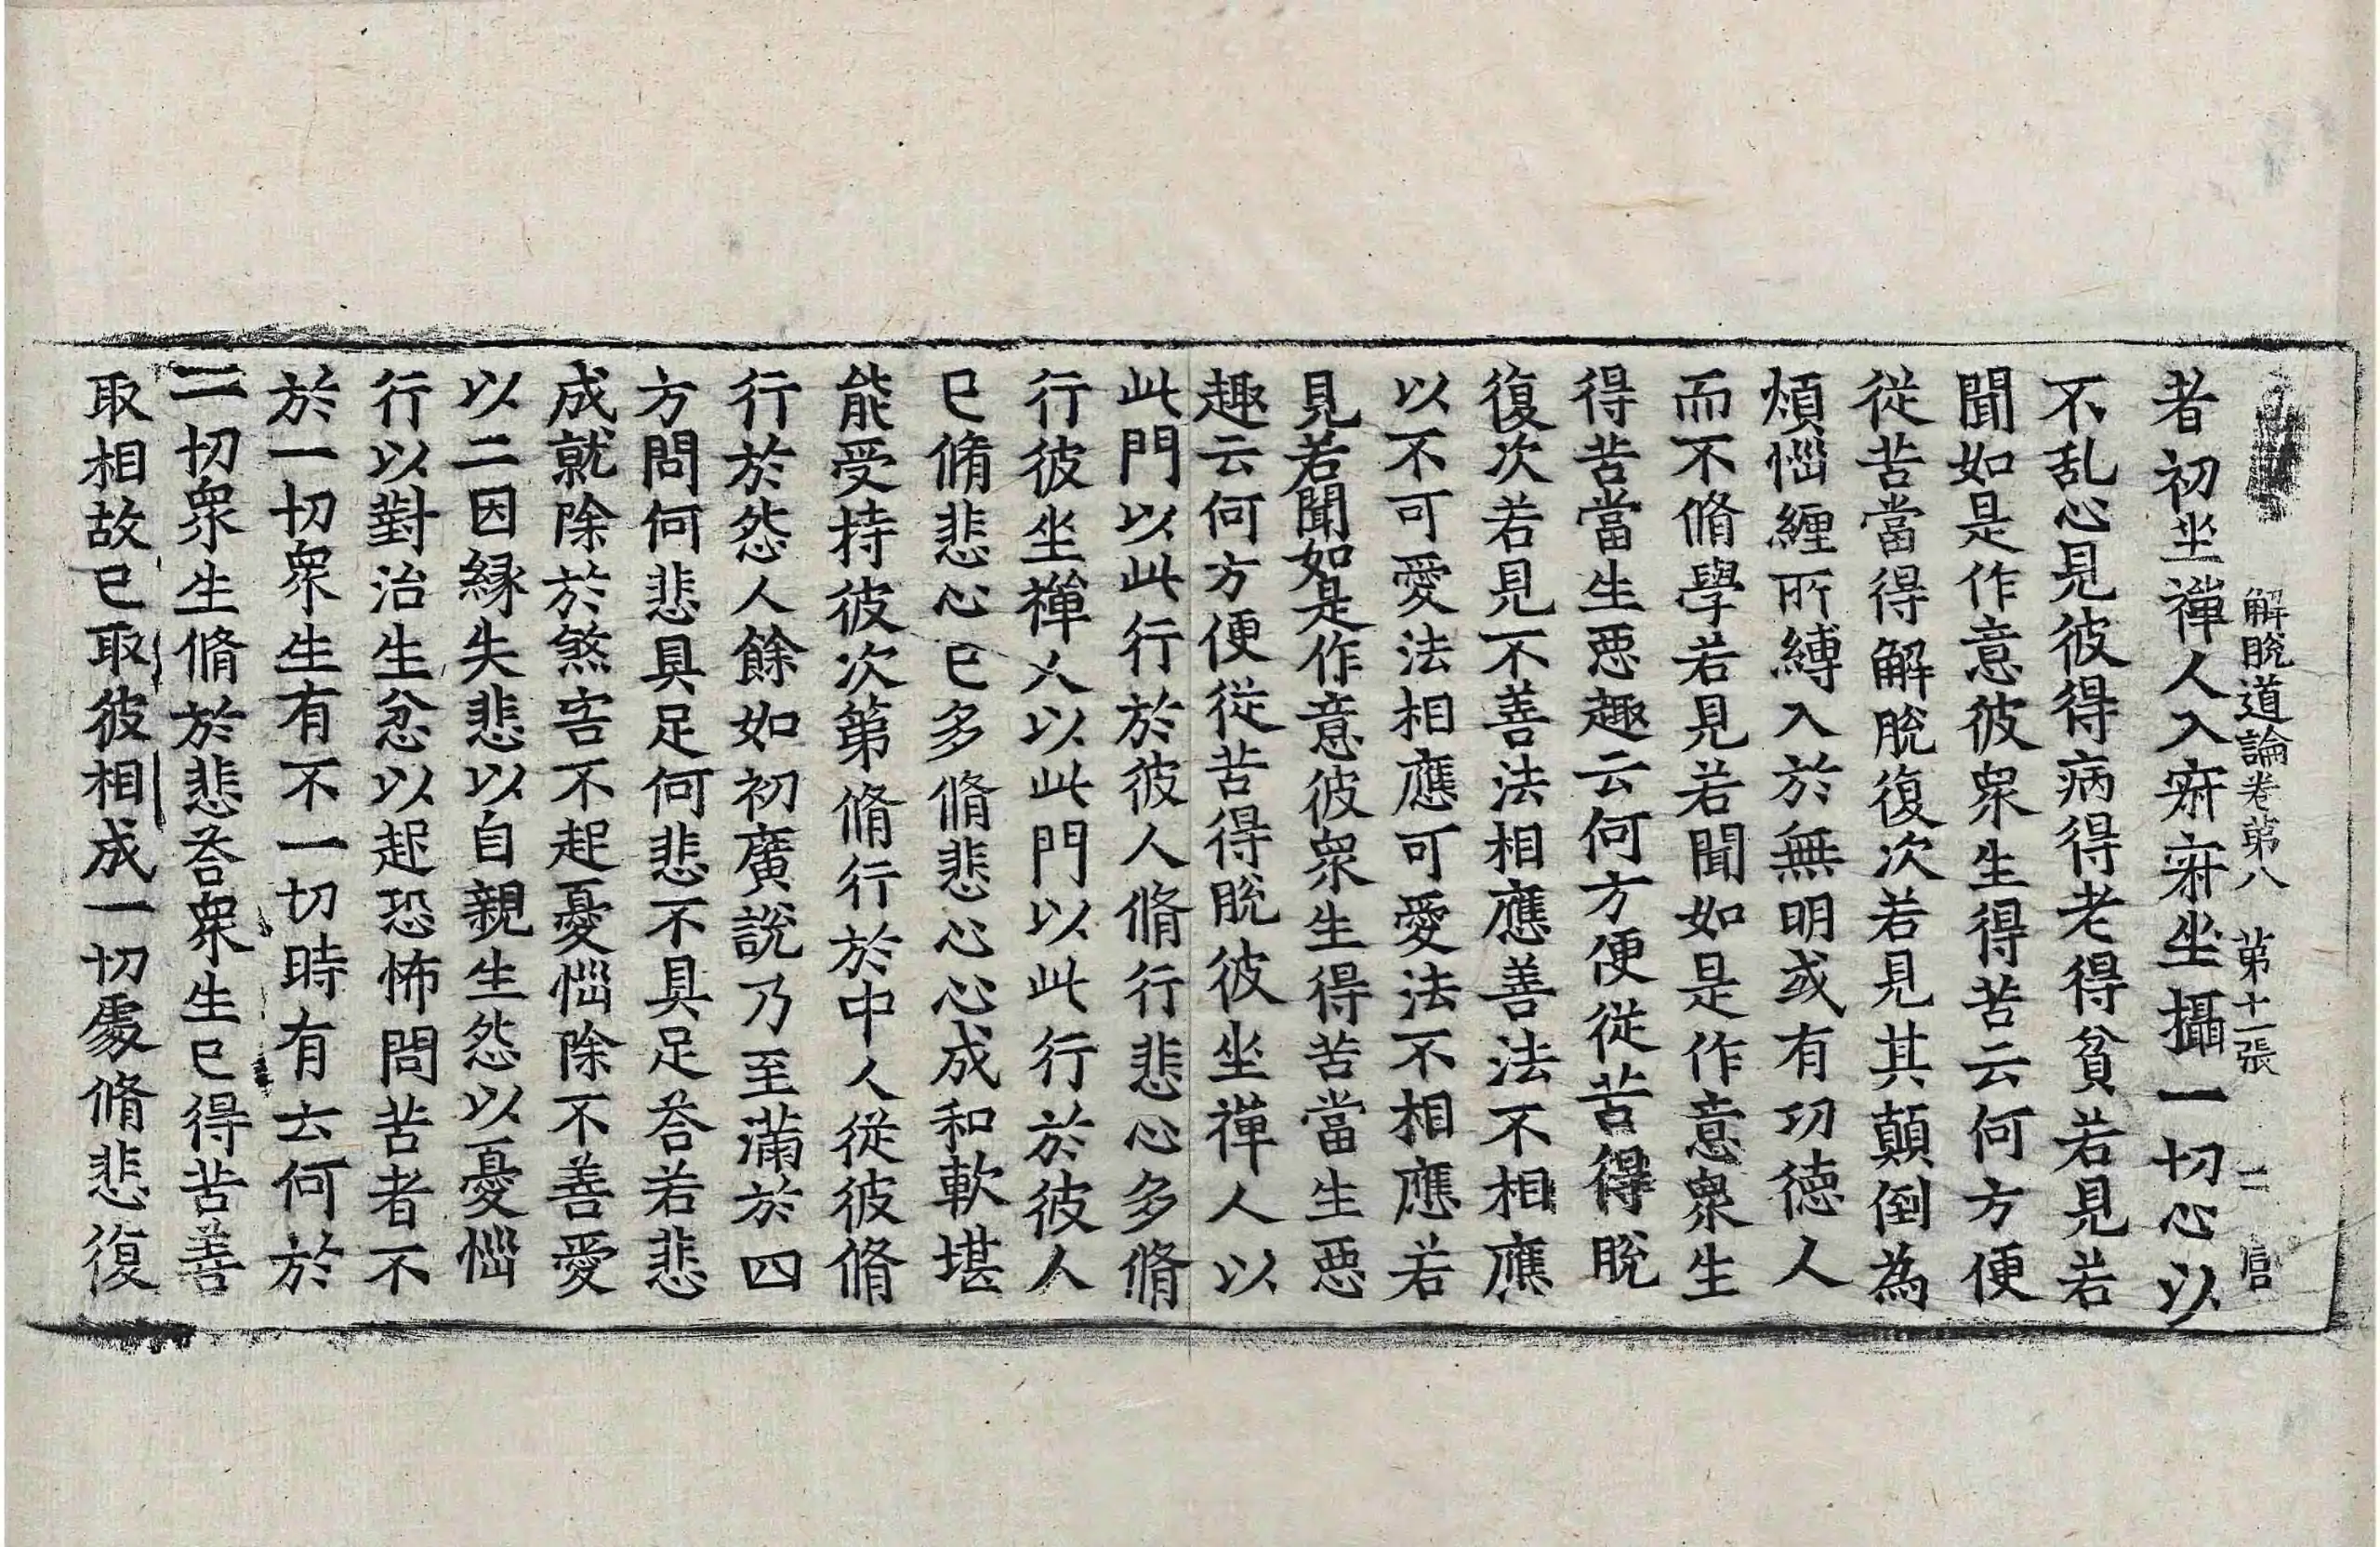 解脫道論卷第八　第十一張　二　官
者初坐禪人入寂寂坐攝一切心以
不乱心見彼得病得老得貧若見若
聞如是作意彼衆生得苦云何方便
従苦當得解脫復次若見其顛倒為
煩惱纒所縛入於無明或有功德人
而不脩學若見若聞如是作意衆生
得苦當生惡趣云何方便従苦得脫
復次若見不善法相應善法不相應
以不可愛法相應可愛法不相應若
見若聞如是作意彼衆生得苦當生惡
趣云何方便従苦得脫彼坐禪人以
此門以此行於彼人脩行悲心多脩
行彼坐禪人以此門以此行於彼人
已脩悲心已多脩悲心心成和軟堪
能受持彼次第脩行於中人従彼脩
行於怨人餘如初廣說乃至滿於四
方問何悲具足何悲不具足荅若悲
成就除於煞害不起憂惱除不善愛
以二因縁失悲以自親生怨以憂惱
行以對治生忿以起恐怖問苦者不
於一切衆生有不一切時有云何於
一切衆生脩於悲荅衆生已得苦善
取相故已取彼相成一切處脩悲復